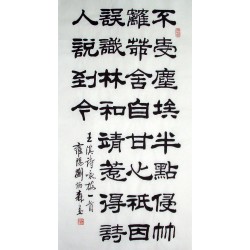 不受塵埃半點侵竹
籬茆舍自甘心祇因
誤識林和靖惹得詩
人說到今
王淇詩咏梅一首
雍陽劉炳森書